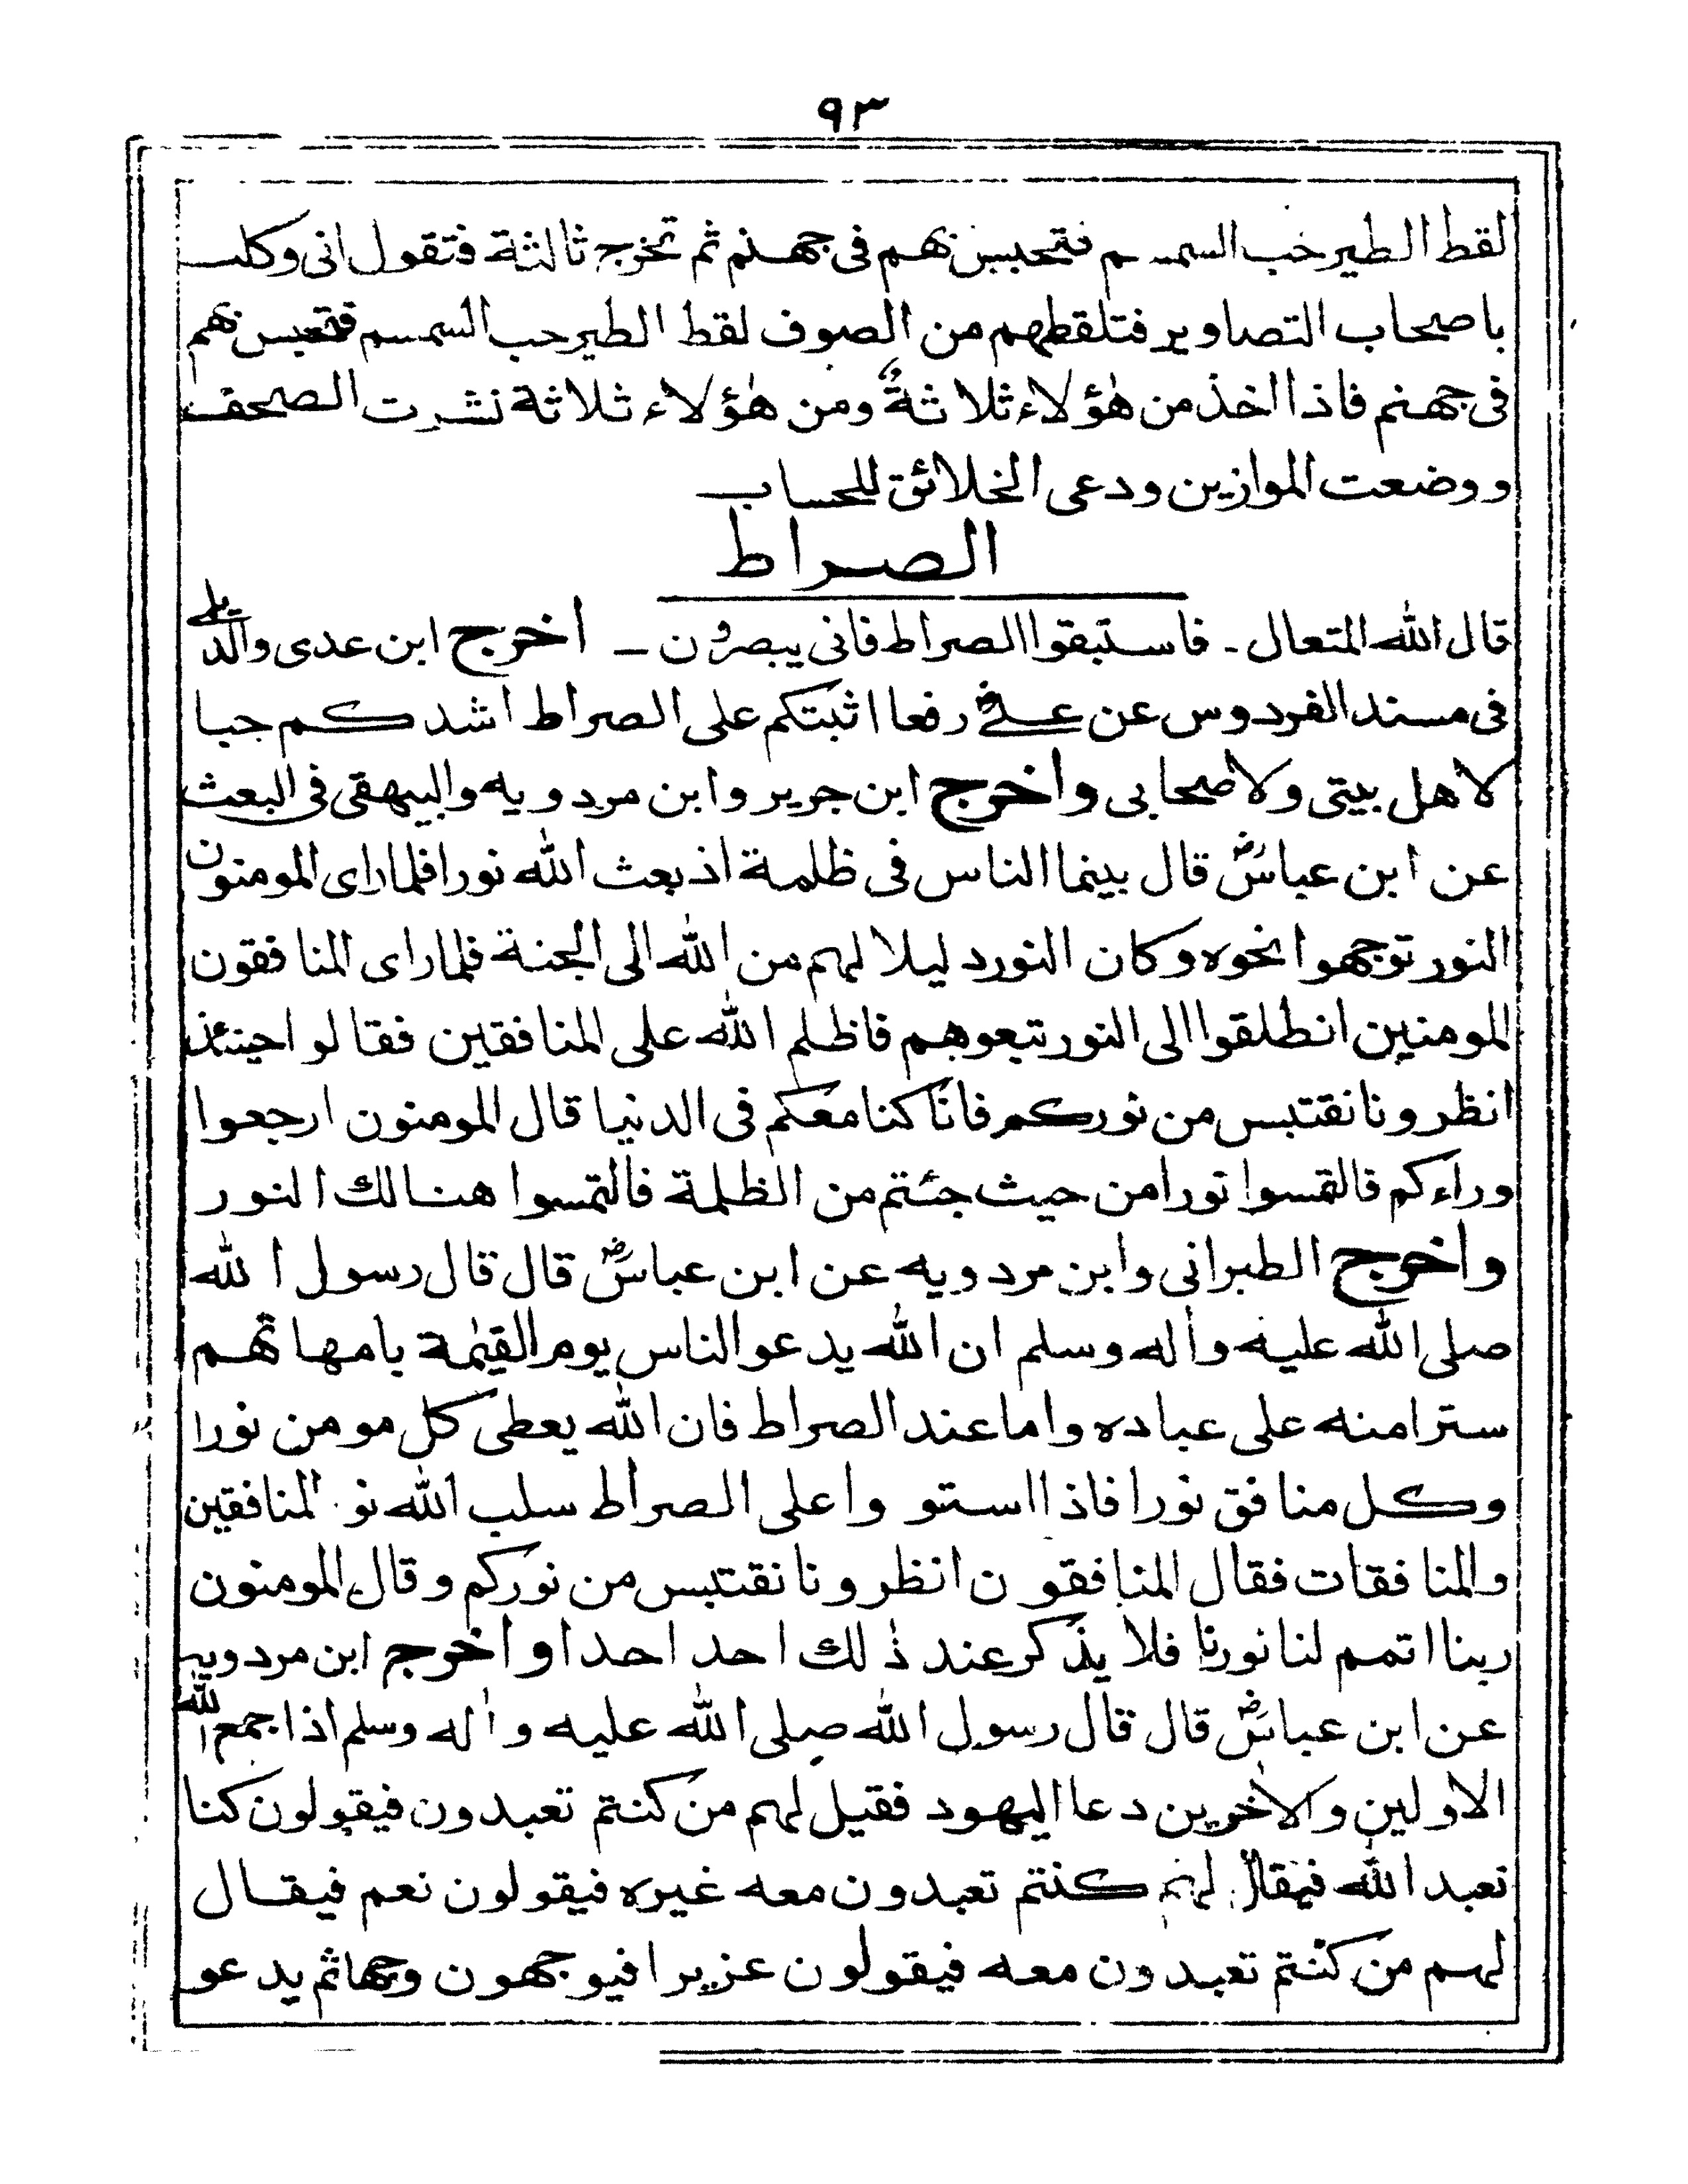 ٩٣
لقط الطير حب السمسم فتحبس بهم فى جهنم ثم تخرج ثالثة فتقول انى وكلت
باصحاب التصاوير فتلقطهم من الصوف لقط الطير حب السمسم فتحبس بهم
فى جهنم فاذا اخذ من هٰؤلاء ثلاثةٌ ومن هٰؤلاء ثلاثة نشرت الصحف
ووضعت الموازين ودعى الخلائق للحساب
الصراط
قال الله المتعال ـ فاستبقوا الصراط فانى يبصرون ـ اخرج ابن عدى والديلمى
فى مسند الفردوس عن علىؓ رفعا اثبتكم على الصراط اشدكم حبا
لاهل بيتى ولاصحابى واخرج ابن جرير وابن مردويه والبيهقى فى البعث
عن ابن عباسؓ قال بينما الناس فى ظلمة اذ بعث الله نورا فلما راى المومنون
النور توجهوا نحوه وكان النور دليلا لهم من الله الى الجنة فلما راى المنافقون
المومنين انطلقوا الى النور تبعوهم فاظلم الله على المنافقين فقالوا حينئذ
انظرونا نقتبس من نوركم فانا كنا معكم فى الدنيا قال المومنون ارجعوا
وراءكم فالتمسوا نورا من حيث جئتم من الظلمة فالتمسوا هنالك النور
واخرج الطبرانى وابن مردويه عن ابن عباسؓ قال قال رسول الله
صلى الله عليه وأله وسلم ان الله يدعو الناس يوم القيٰمة بامهاتهم
سترا منه على عباده واما عند الصراط فان الله يعطى كل مومن نورا
وكل منافق نورا فاذا استووا على الصراط سلب الله نو المنافقين
والمنافقات فقال المنافقون انظرونا نقتبس من نوركم وقال المومنون
ربنا اتمم لنا نورنا فلا يذكر عند ذٰلك احد احدا واخرج ابن مردويه
عن ابن عباسؓ قال قال رسول الله صلى الله عليه واٰله وسلم اذا جمع الله
الاولين والاٰخرين دعا اليهود فقيل لهم من كنتم تعبدون فيقولون كنا
نعبد الله فيقال لهم كنتم تعبدون معه غيره فيقولون نعم فيقال
لهم من كنتم تعبدون معه فيقولون عزيرا فيوجهون وجها ثم يدعو